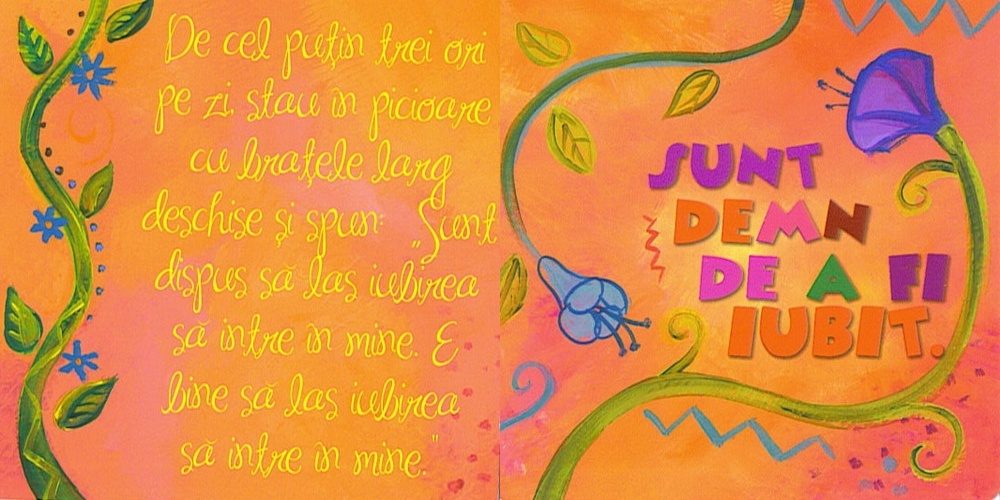 De cel puțin trei ori
pe zi, stau în picioare
cu brațele larg
deschise și spun: „Sunt
dispus să las iubirea
să intre în mine. E
bine să las iubirea
să intre în mine."
SUNT
DEMN
DE A FI
IUBIT.